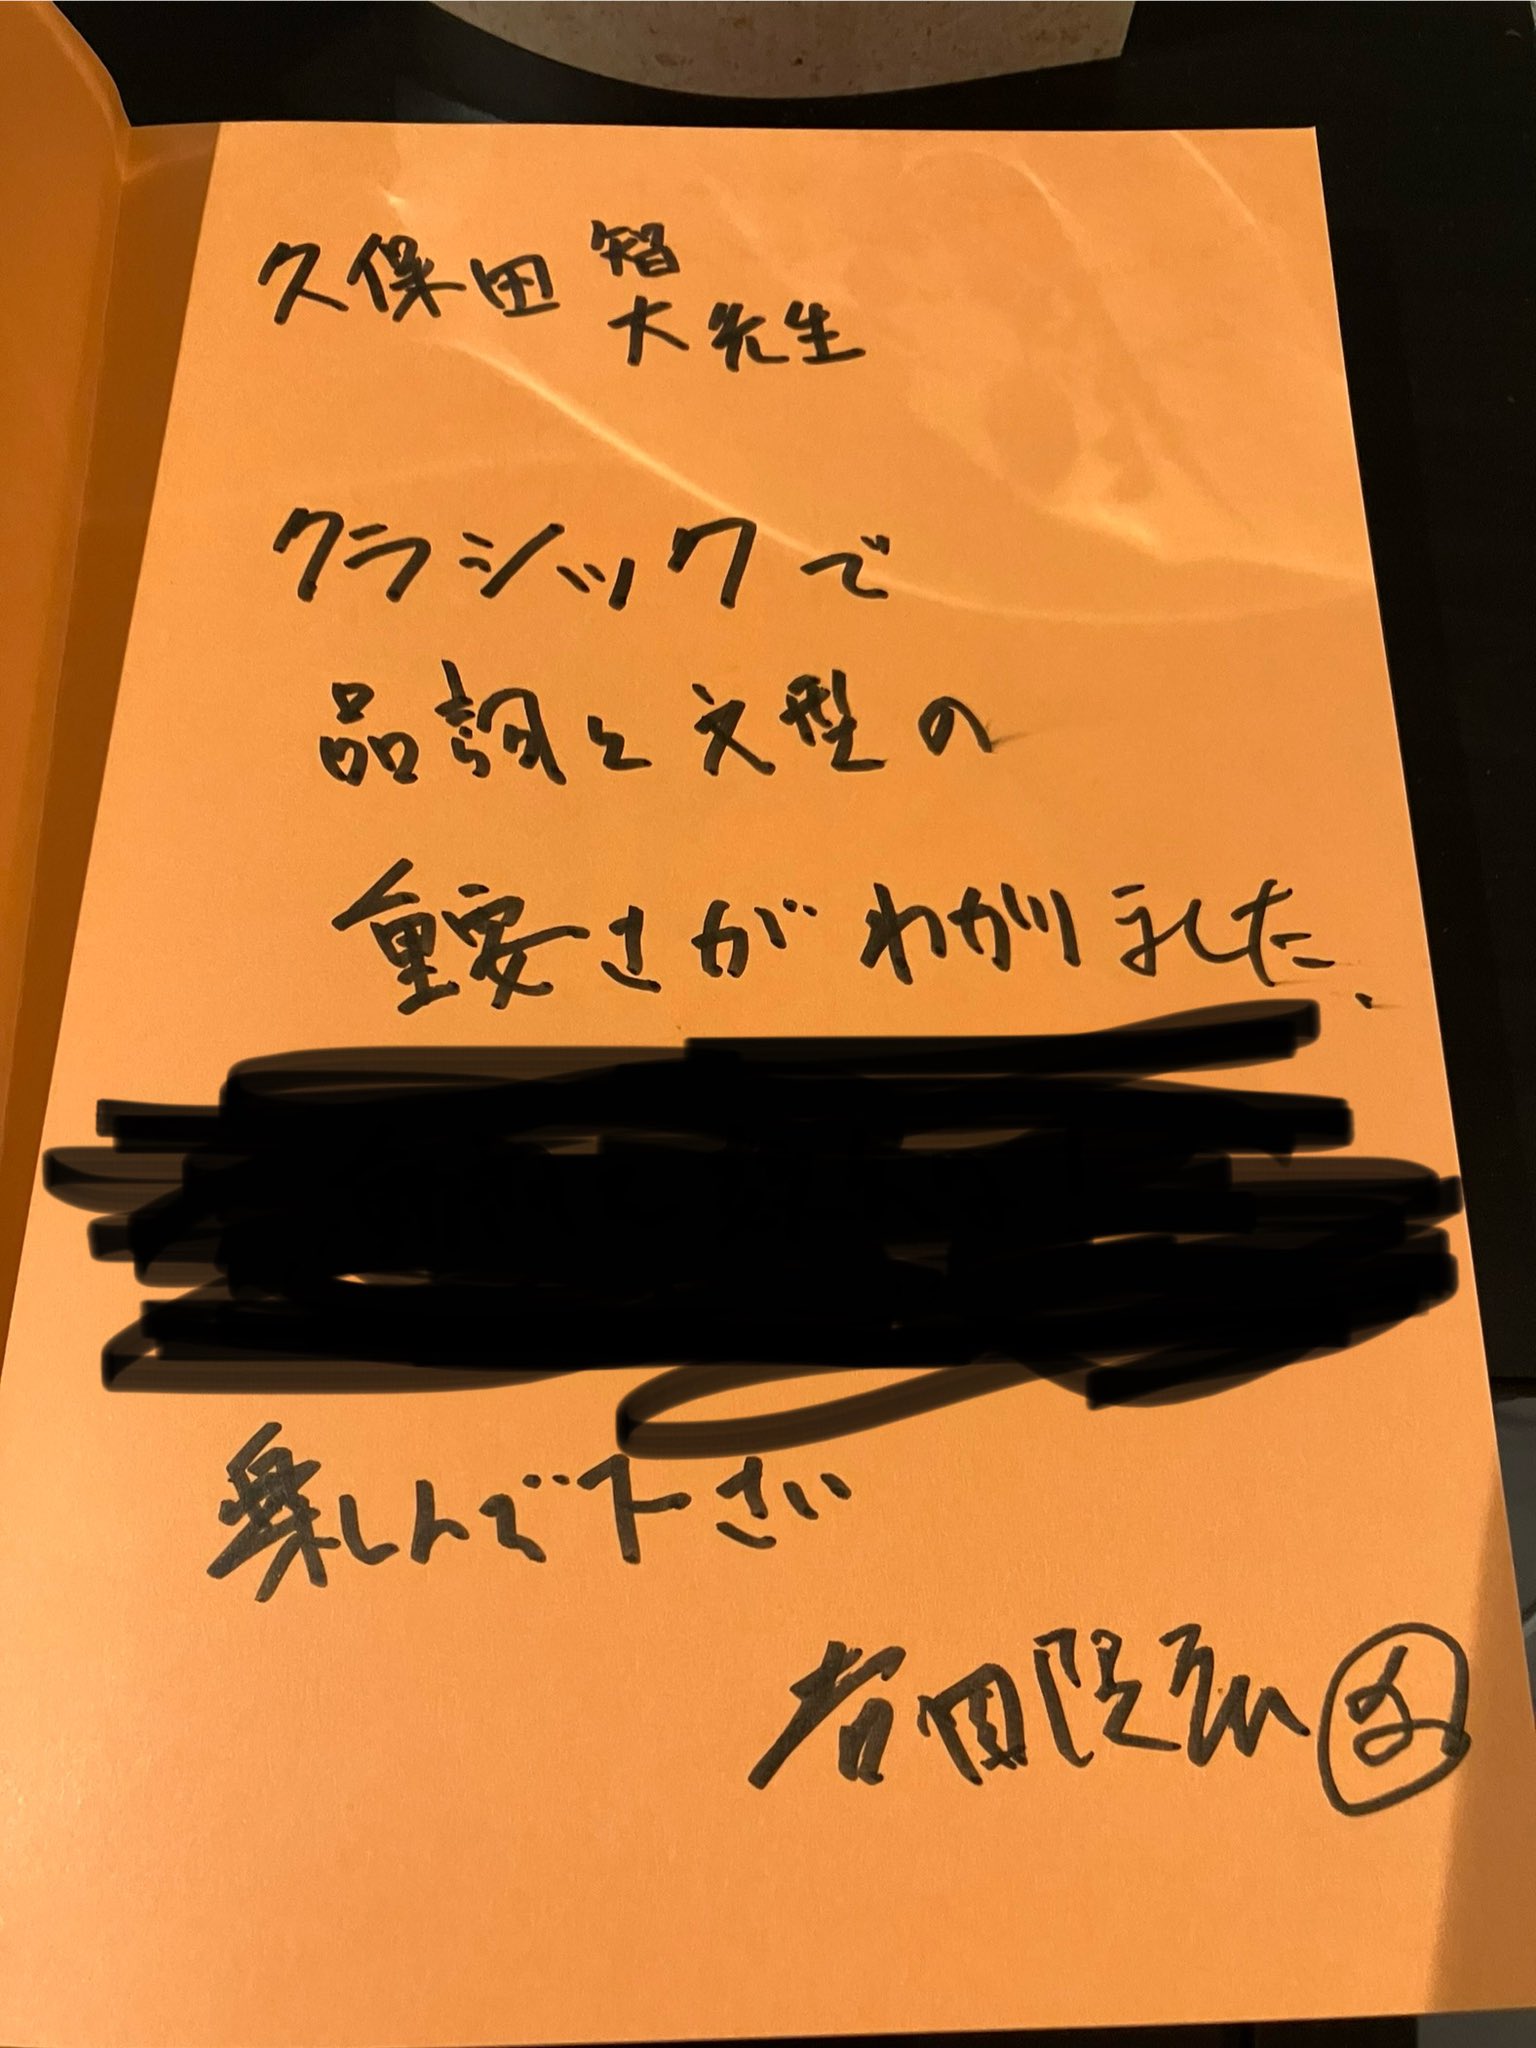 久保田智大先生
クラシックで
品詞と文型の
重要さがわかりました、
楽しんで下さい